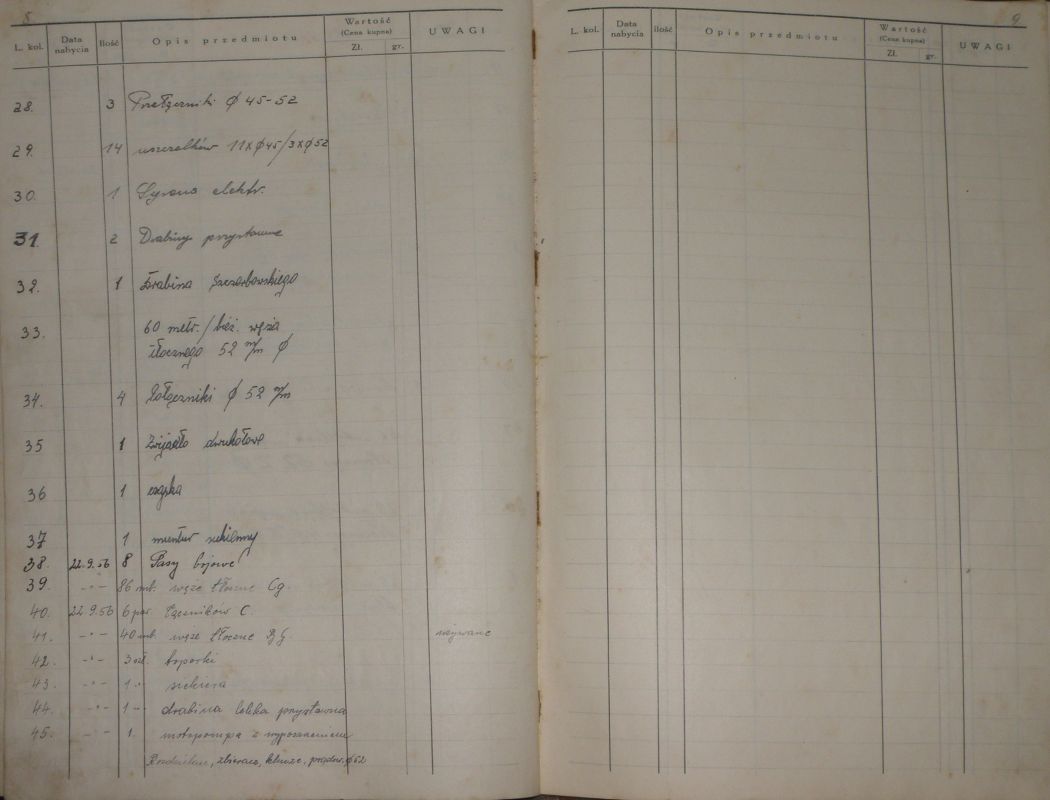 8
L. kol. Data nabycia Ilość Opis przedmiotu Wartość (Cena kupna) Zł. gr. UWAGI
28. 3 Przełączniki ϕ 45-52
29. 14 uszczelków 11xϕ45/3xϕ52
30. 1 Syrena elektr.
31. 2 Drabiny przystawne
32. 1 Drabina Szczerbowskiego
33. 60 metr./bież. węża
tłocznego 52 m/m ϕ
34. 4 ϕ 52 m/m
35 1 Zwijadło dwukołowe
36 1
37 1 mundur sukienny
38. 22.9.56 8 Pasy bojowe
39. -"- 86 mt. węże tłoczne Cg.
40. 22 9.56 6 par łączników C.
41. -"- 40 mb. węże tłoczne używane
42. -"- 3 szt. toporki
43. -"- 1 -"- siekiera
44. -"- 1 -"- drabina lekka przystawna
45. -"- 1. motopompa z wyposażeniem
zbieracz, klucze, prądow. ϕ52
9
L. kol. Data nabycia Ilość Opis przedmiotu Wartość (Cena kupna) Zł. gr. UWAGI